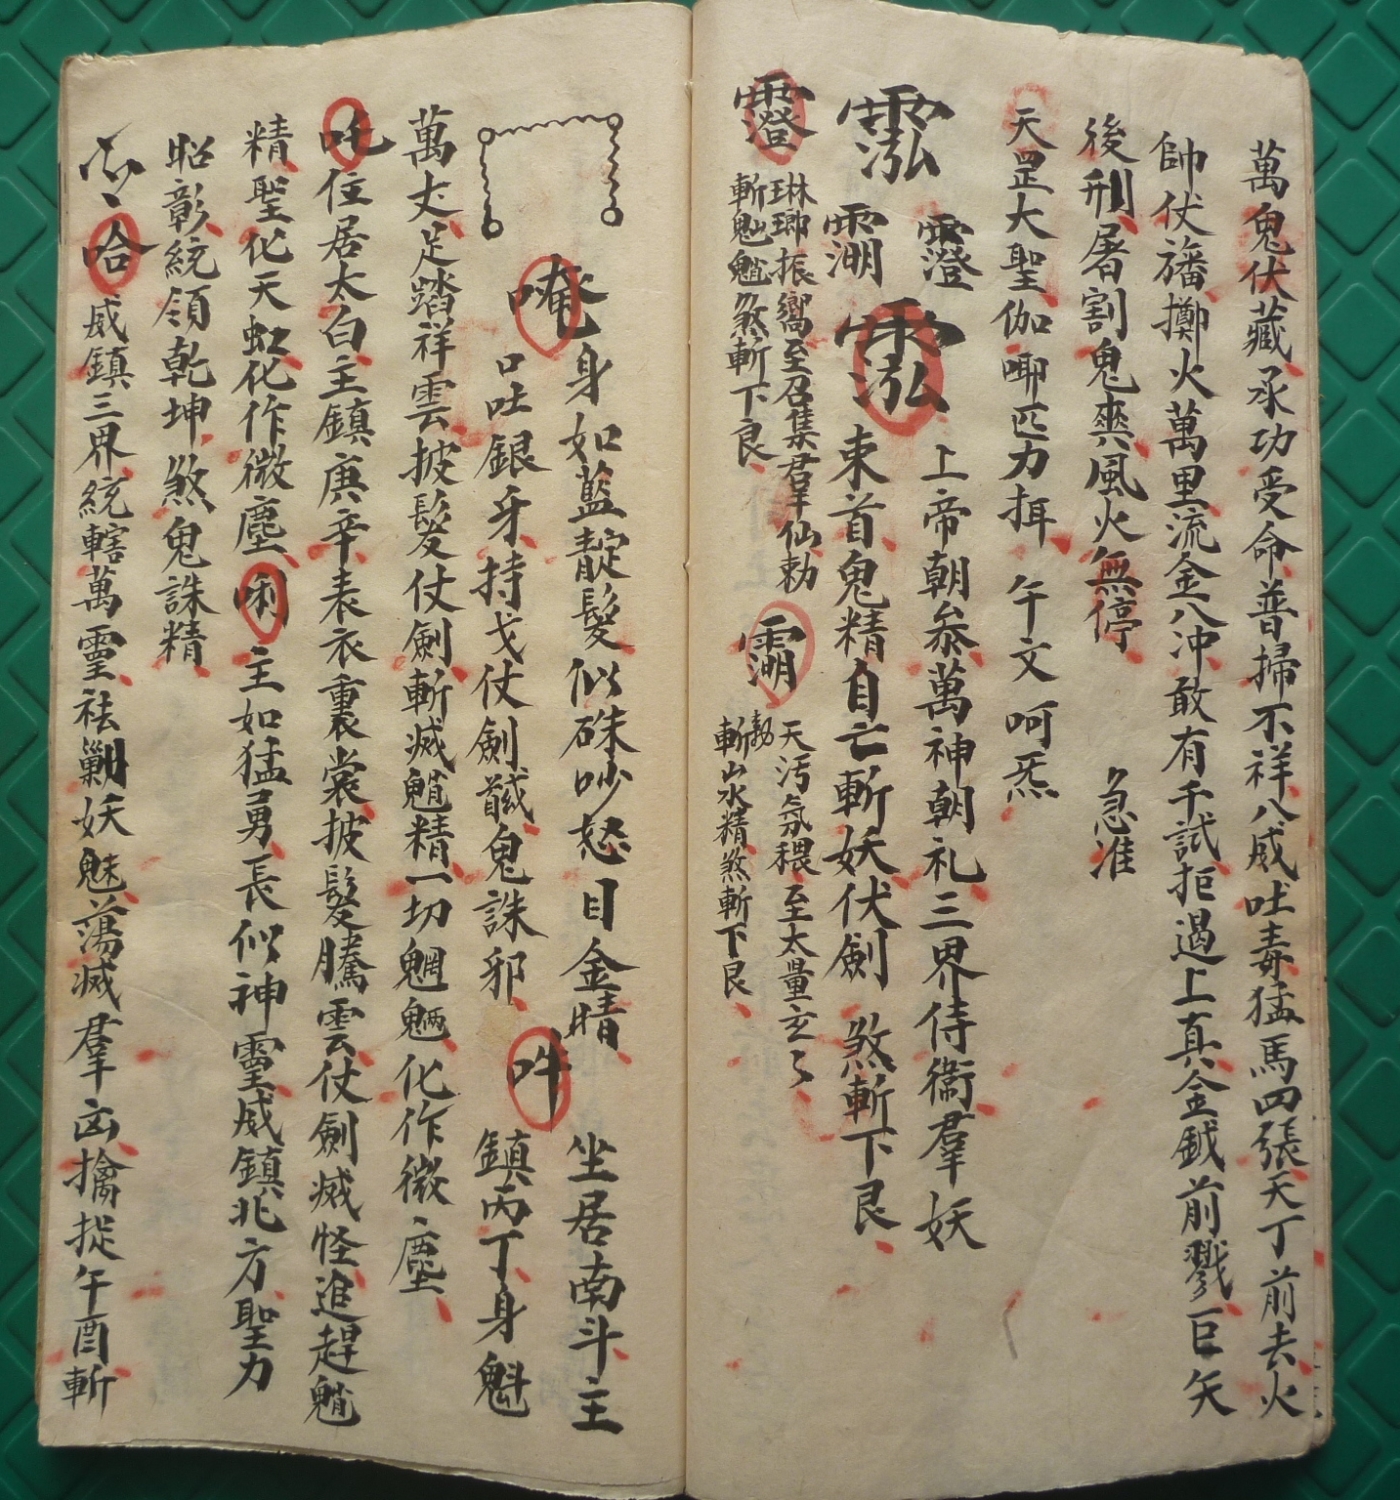 萬鬼伏藏承功受命普掃不祥八威吐毒猛馬四張天丁前去火
帥伏旛擲火萬里流金八冲敢有千試拒遏上真金鉞前戮巨矢
後刑屠割鬼爽風火無停 急准
天罡大聖伽唧匹力揖 午文呵炁
澄 上帝朝叅萬神朝礼三界侍衛羣妖
東首鬼精自亡斬妖伏劍 煞斬下艮
琳瑯振嚮至召集群仙勅
斬魈煞斬下良
天污氛穢至太量玄
勅斬山水精煞斬下艮
身如藍靛髮似硃吵怒目金睛 坐居南斗主
唵 口吐銀牙持戈仗劍馘鬼誅邪 吽 鎮丙丁身魁
萬丈足踏祥雲披髮仗劍斬滅精一切魍魎化作微塵
吒住居太白主鎮庚辛表衣裏裳披髮騰雲仗劍滅怪追趕
精聖化天虹化作微塵 唎 主如猛勇長似神靈威鎮北方聖力
昭彰統領乾坤煞鬼誅精
哈 威鎮三界統轄萬靈祛剿妖魅蕩滅羣凶擒捉午酉斬